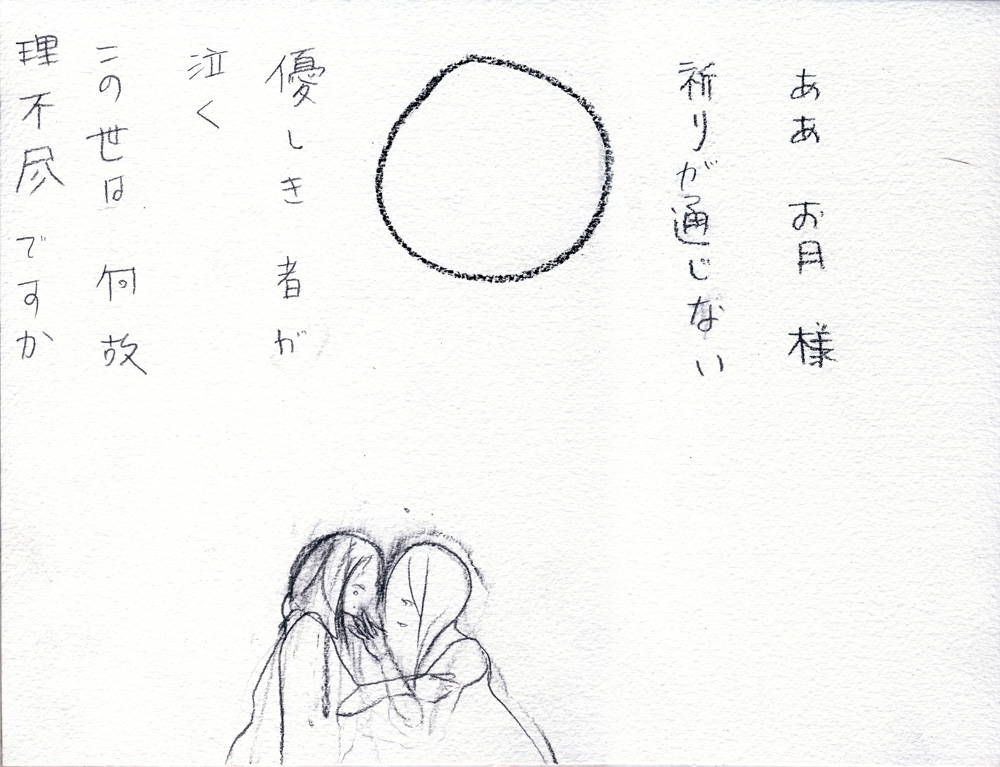 ああ お月 様
祈りが通じない
優しき者が
泣く
この世は 何故
理不尽ですか